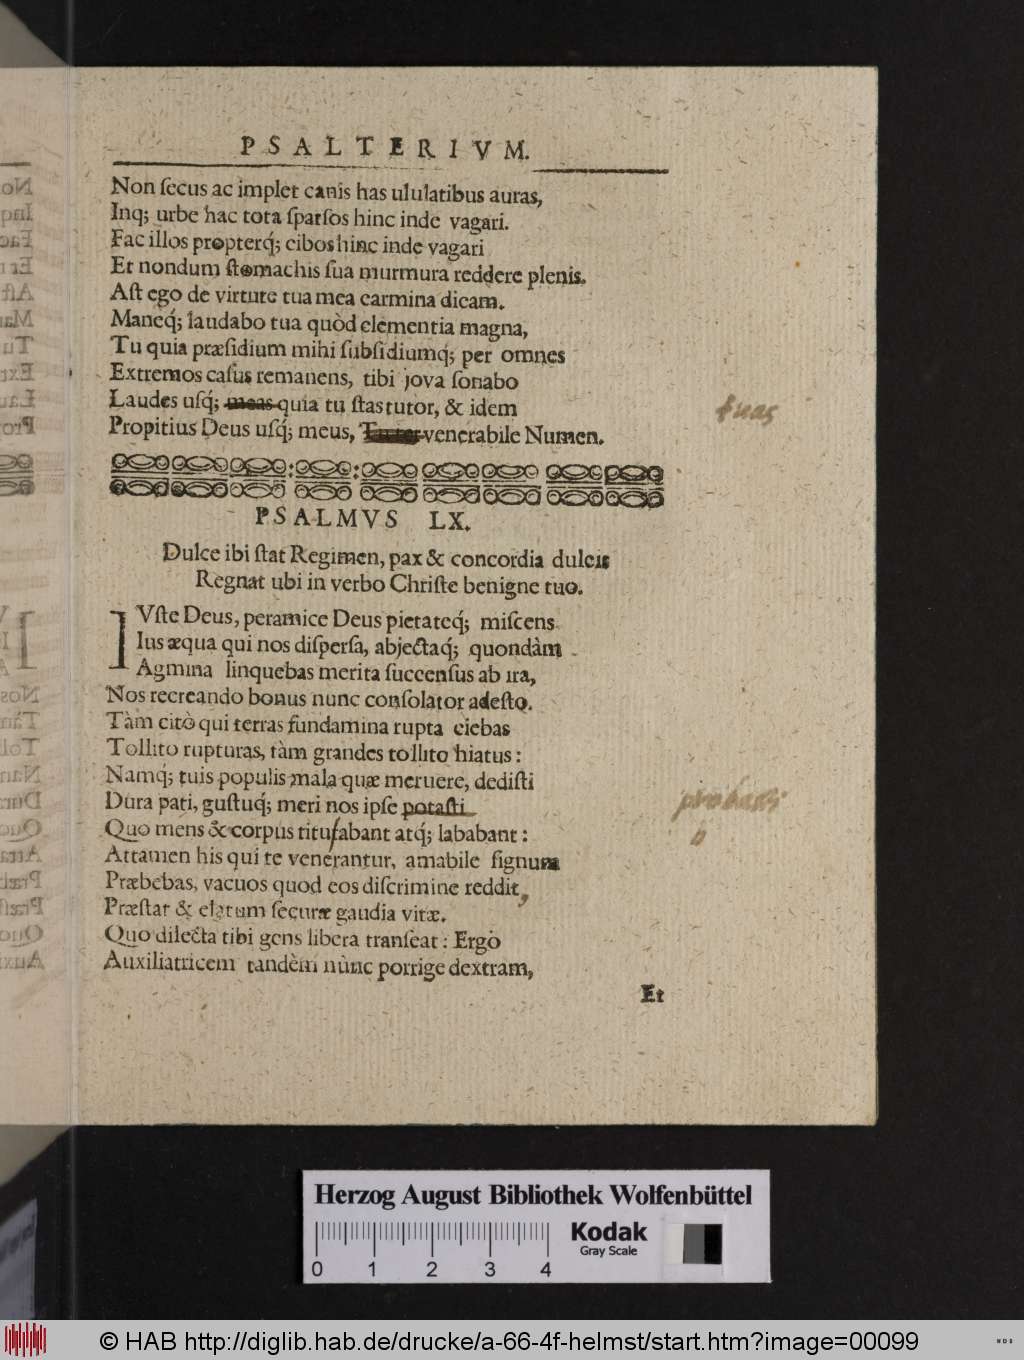 PSALTERIVM.
Non ſecus ac implet canis has ululatibus auras,
Inq; urbe hac tota ſparſos hinc inde vagari.
Fac illos propterq́; cibos hinc inde vagari
Et nondum ſtomachis ſua murmura reddere plenis.
Aſt ego de virtute tua mea carmina dicam.
Maneq́; laudabo tua quòd clementia magna,
Tu quia præſidium mihi ſubſidiumq́; per omnes
Extremos caſus remanens, tibi jova ſonabo
Laudes uſq́; meas quia tu ſtas tutor, & idem
tuas
Propitius Deus uſq́; meus, venerabile Numen.
PSALMVS LX.
Dulce ibi ſtat Regimen, pax & concordia dulcis
Regnat ubi in verbo Chriſte benigne tuo.
IVſte Deus, peramice Deus pietateq́; miſcens
Ius æqua qui nos diſperſa, abjectaq́; quondàm
Agmina linquebas merita ſuccenſus ab ira,
Nos recreando bonus nunc conſolator adeſto.
Tàm citò qui terras fundamina rupta ciebas
Tollito rupturas, tàm grandes tollito hiatus:
Namq́; tuis populis mala quæ meruere, dediſti
Dura pati, guſtuq́; meri nos ipſe potaſti
probaſti
Quo mens & corpus titubabant atq́; lababant:
b
Attamen his qui te venerantur, amabile ſignum
Præbebas, vacuos quod eos diſcrimine reddit,
Præſtat & elatum ſecuræ gaudia vitæ.
Quo dilecta tibi gens libera tranſeat: Ergò
Auxiliatricem tandèm nùnc porrige dextram,
Et
Herzog August Bibliothek Wolfenbüttel
Kodak
Gray Scale
0 1 2 3 4
© HAB http://diglib.hab.de/drucke/a-66-4f-helmst/start.htm?image=00099